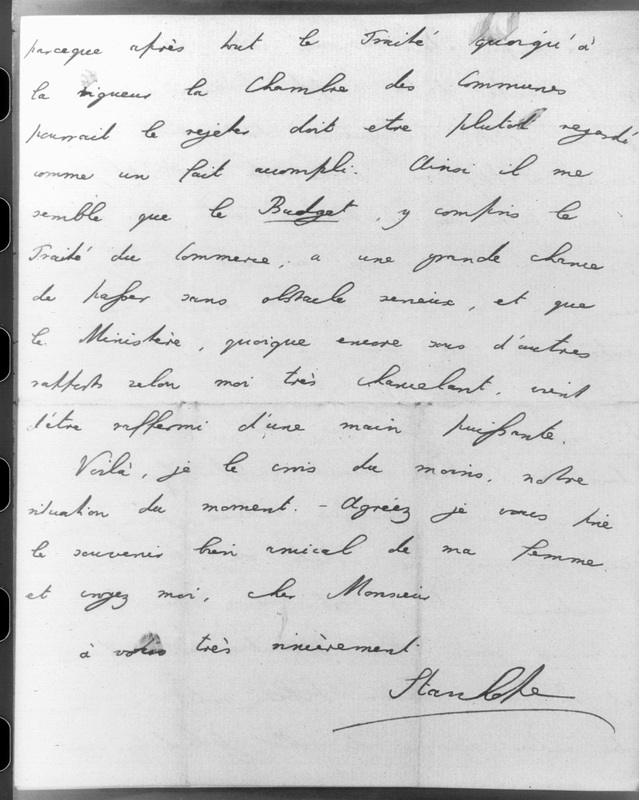 parceque après tout le Traité quoiqu'à
la rigueur la Chambre des Communes
pourrait le rejeter doit etre plutôt regardé
comme un fait accompli. Ainsi il me
semble que le Budget, y compris le
Traité du Commerce, a une grande chance
de passer sans obstacle serieux, et que
le Ministère, quoique encore sous d'autres
rapports selon moi très chancelant, vient
d'être raffermi d'une main puissante.
Voilà, je le crois du moins, notre
situation du moment. - Agréez je vous prie
le souvenir bien amical de ma femme
et croyez moi, cher Monsieur
à vous très sincèrement
Stanhope